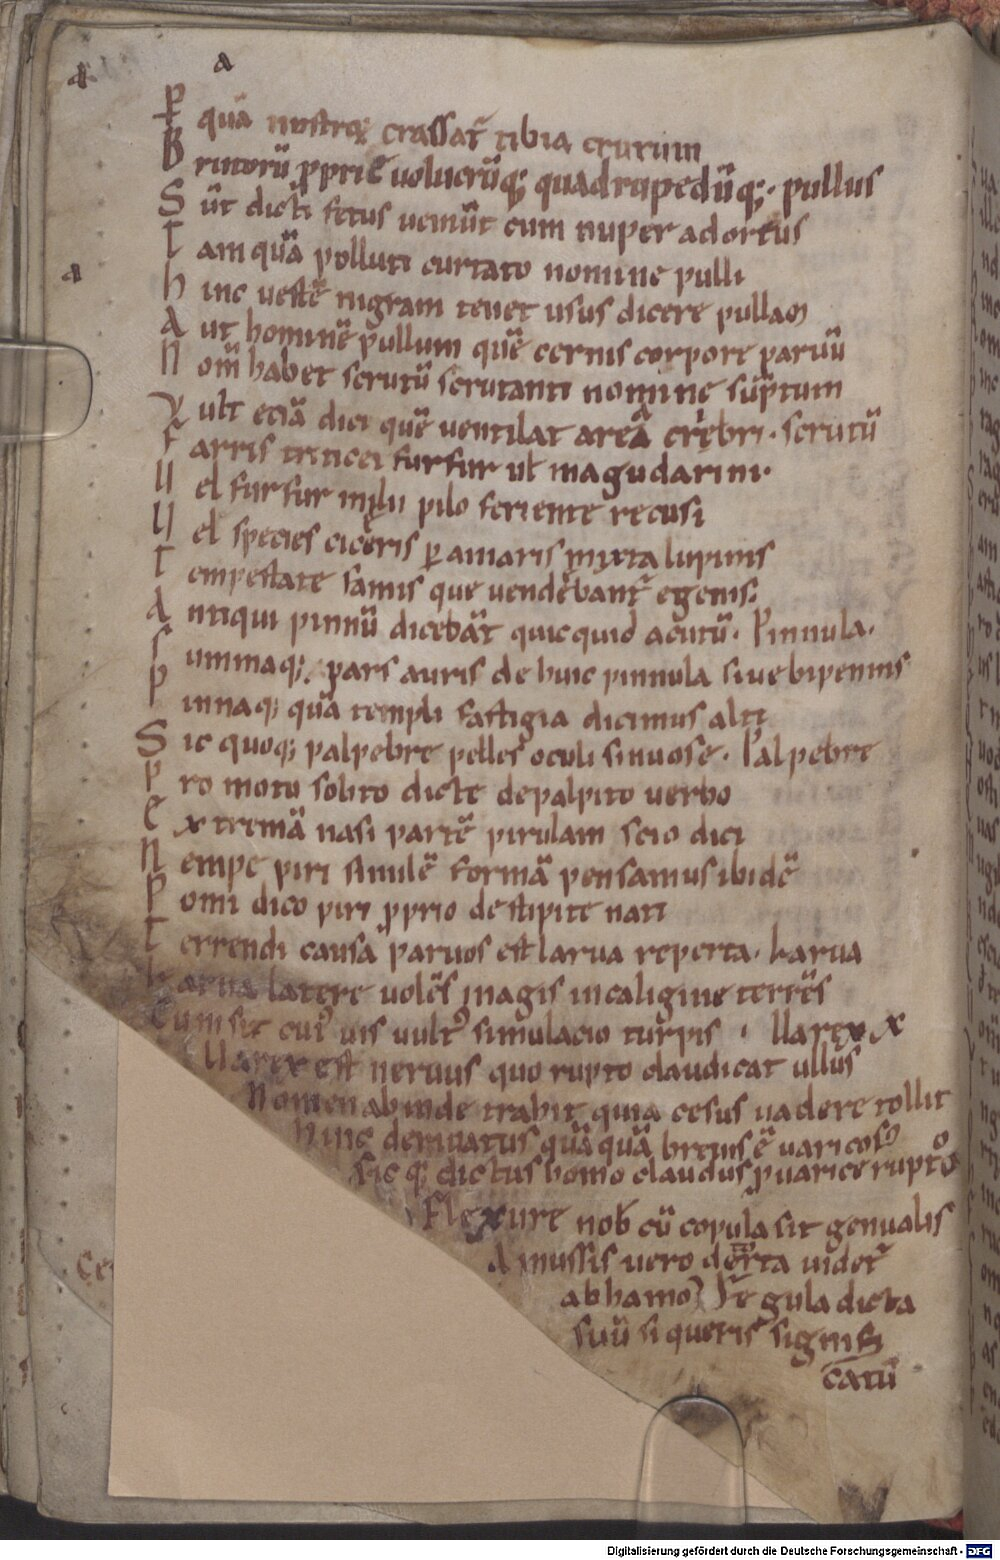 a a
P quā nostroꝝ crassat᷑ tibia crurum
B rutorū ꝓprie uolucrūq; quadrupedūq;. pullus
S ūt dicti fetus ueniūt cum nuper ad ortus
T am quā polluti curtato nomine pulli
a
h inc uestē nigram tenet usus dicere pullam
A ut hominē pullum quē cernis corpore paruū
N om̄ habet scrutū scrutanti nomine sūptum
V ult eciā dici quē uentilat areā cribri. scrutū
F arris triticei furfur uł magudarini.
U el furfur milii pilo feriente recusi
U el species ciceris ꝑ amaris mixta lupinis
T empestate famis que uendebant᷑ egenis.
A ntiqui pinnū dicebāt quicquid acutū. Pinnula.
S ummaq; pars auris de huic pinnula siue bipennis
P innaq; quā templi fastigia dicimus alti
S ic quoq; palpebre pelles oculi sinuose. Palpebre
P ro motu solito dicte de palpito uerbo
E xtremā nasi partē pirulam scio dici
N empe piri similē formā pensamus ibidē
P omi dico piri ꝓprio de stipite nati
T errendi causa paruos est larua reperta. Larua
L arua latere uolēs magis in caligine terrēs
Cum sit cui᷒ uis uult᷒ simulacio turpis . llarex x
llarex est neruus quo rupto claudicat ullus
Nomen ab inde trahit quia cesus uadere tollit
hinc deriuatus quā quā breuis ē
Sic q; dictus homo claudus ꝓ uarice rupto
Flexure nob̄ cū copula sit genualis
Amussis uero uidet᷑
ab hamo Regula dicta
suū si queris signifi
catū
Ce
Digitalisierung gefördert durch die Deutsche Forschungsgemeinschaft - DFG